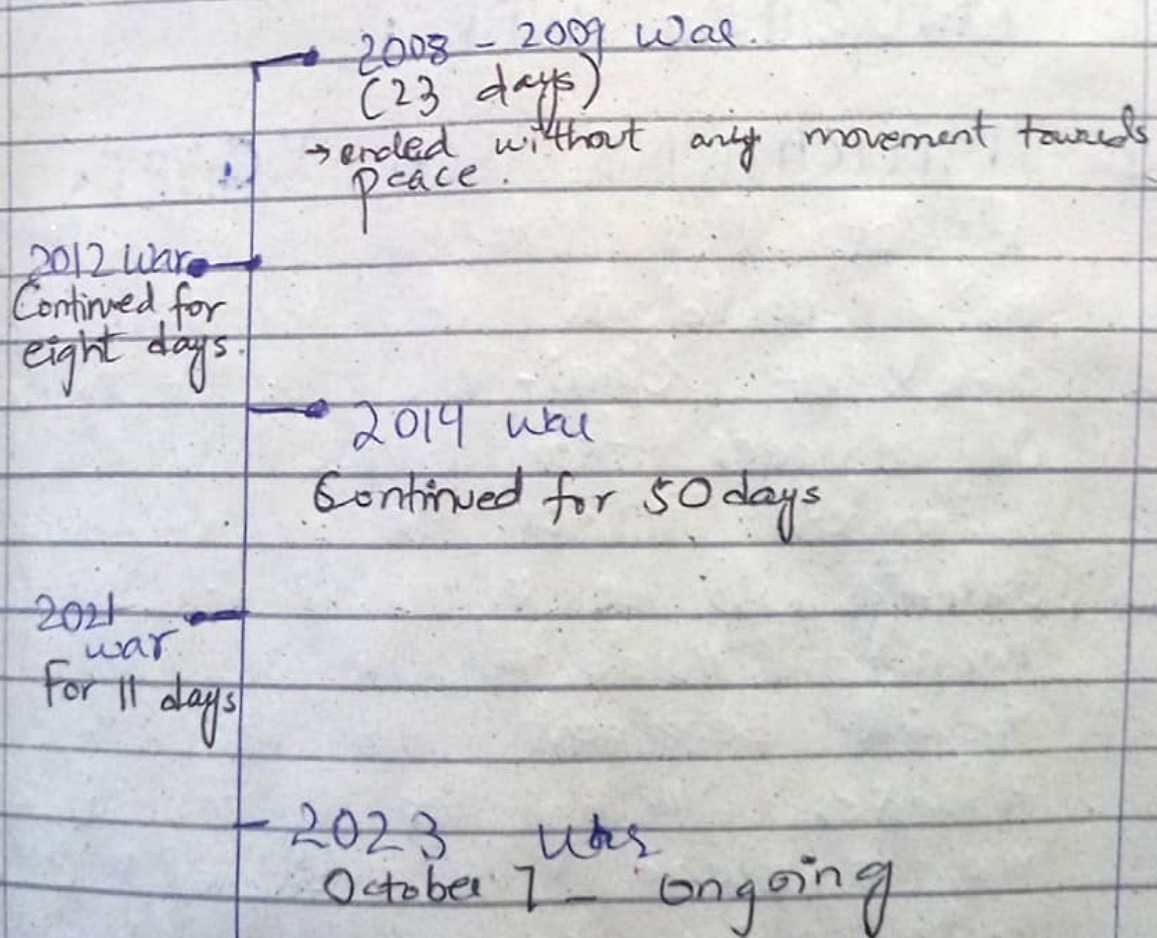 2008 - 2009 War.
(23 days)
→ ended without any movement towards
peace.
2012 War
Continued for
eight days.
2014 War
Continued for 50 days
2021
war
For 11 days
2023 War
October 7 - ongoing